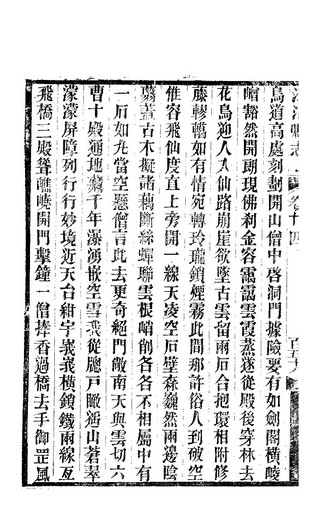 鳥道高處剗劃開山僧中啓洞門據險要有如劍閣橫崚
嶒豁然開瑚現佛刹金容靄靄雲霞蒸遂從殿後穿林去
花鳥迎人入仙路崩崖欲墜古雲留兩石合抱環相附修
藤轇轕如有情宛轉玲瓏鎖煙霧此間那許俗人到破空
惟容飛仙度直上旁開一線天凌空石壁森巍然兩邊陰
翳蓋古木擬諸藕斷絲蟬聯雲根峭削各各不相屬中有
一石如尤當空懸僧言此去更奇絕門敵南天與雲切六
曹十殿通地藏千年瀑湧嵌空雪我從牕戶瞰遙山蒼翠
濛濛屏障列行行妙境近天台紺宇峩峩橫鎖鐵兩線亙
飛橋三殿聳巍嶢開門擊鐘一僧捧香過橋去手御罡風